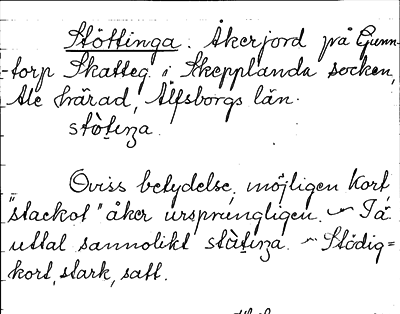 Stöttinga. Åkerjord på Gunn-
-torp Skatteg. i Skepplanda socken,
Ale härad, Älfsborgs län.
stòtiŋa.
Oviss betydelse, möjligen kort,
"stackot" åker ursprungligen. ~ Tä
uttal sannolikt stùtiŋa. ~ Stödig=
kort, stark, satt.